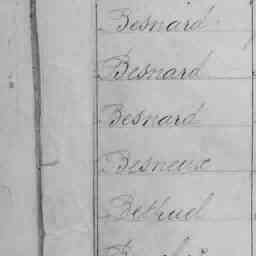 Besnard
Besnard
Besnard
Besneux
Béthuel